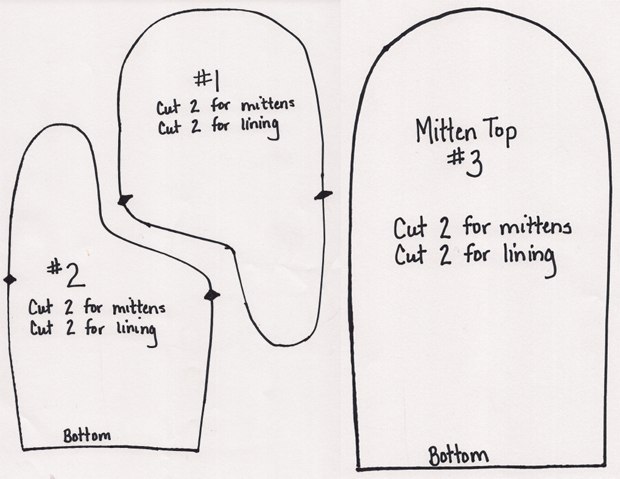 #1
Cut 2 for mittens
Cut 2 for lining
#2
Cut 2 for mittens
Cut 2 for lining
Bottom
Mitten Top
#3
Cut 2 for mittens
Cut 2 for lining
Bottom